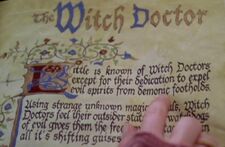 The Witch Doctor
Little is known of Witch Doctors
except for their dedication to expel
evil spirits from demonic footholds.
Using strange unknown magic, Witch
Doctors feel their outsider
of evil gives them the free
all it's shifting guises